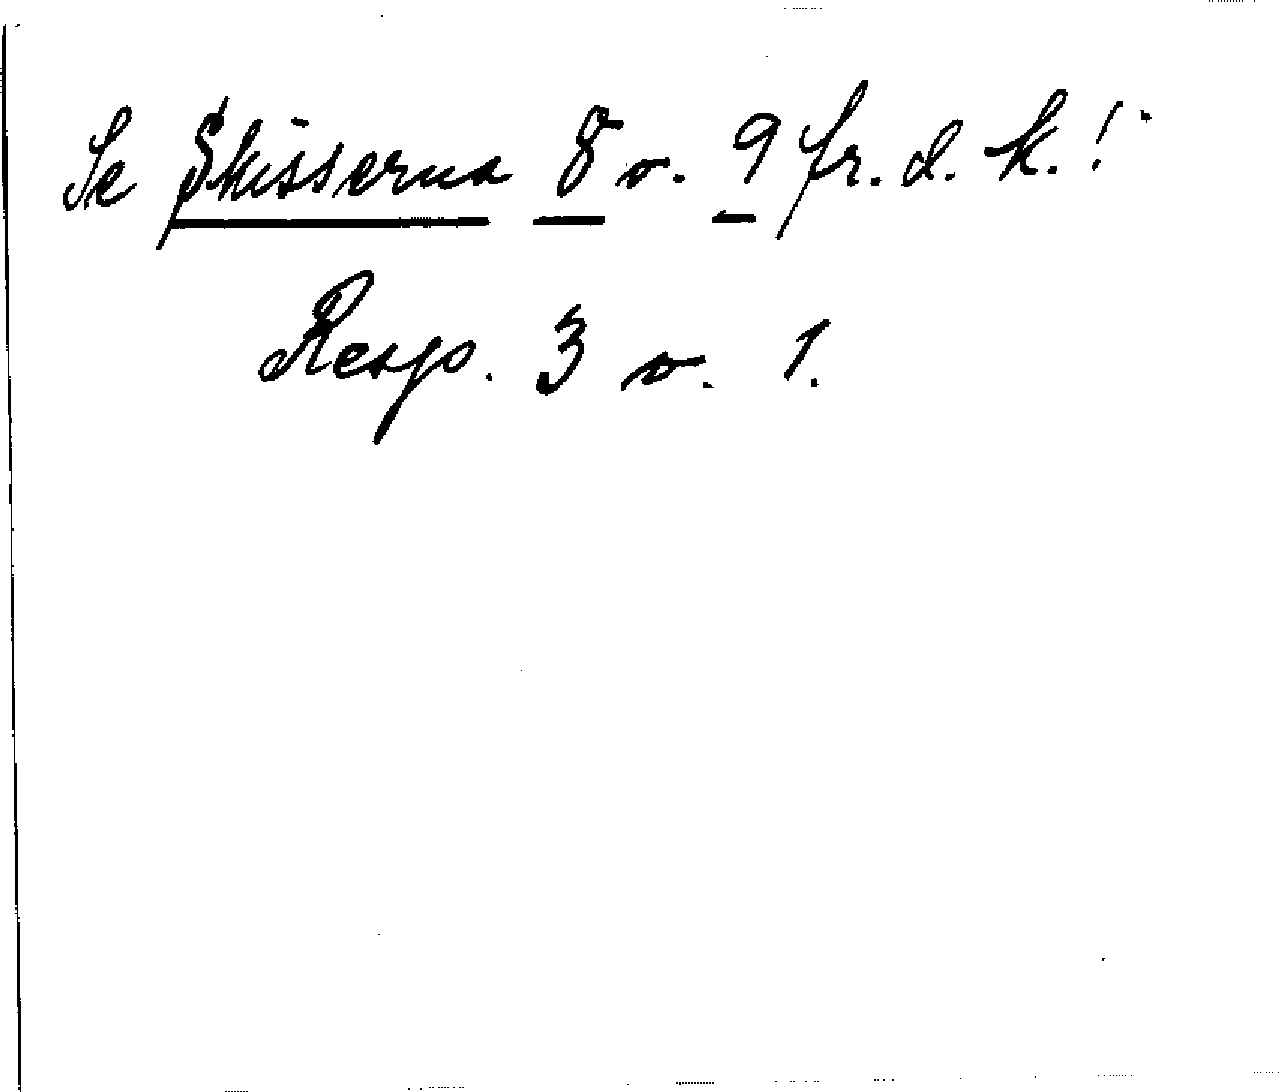 Se Skisserna 8 o. 9 fr. d. k.!
Resp. 3 o. 1.